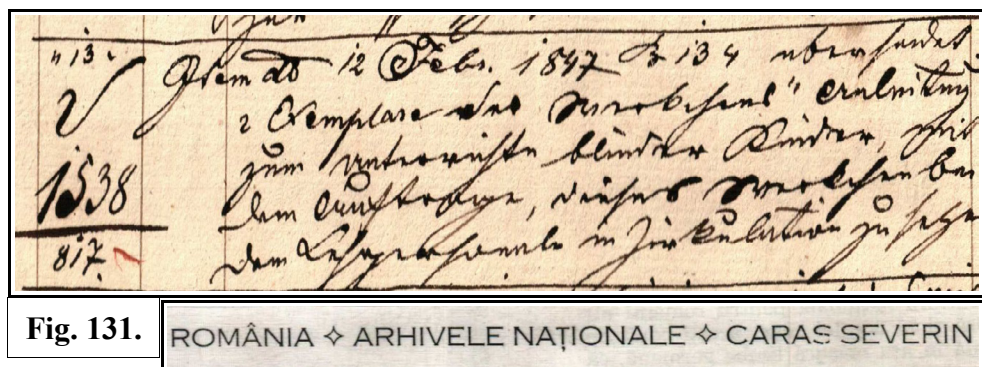 "13"
dto 12 Febr. 1847 Z 134 übersendet
2 Exemplare des Werkchens "Anleitung
zum Unterrichte blinder Kinder, mit
1538
dem Auftrage, dieses Werkchen bei
dem Lehrpersonale in Zirkulation zu setzen
817.
Fig. 131.
ROMÂNIA ✧ ARHIVELE NAȚIONALE ✧ CARAȘ SEVERIN